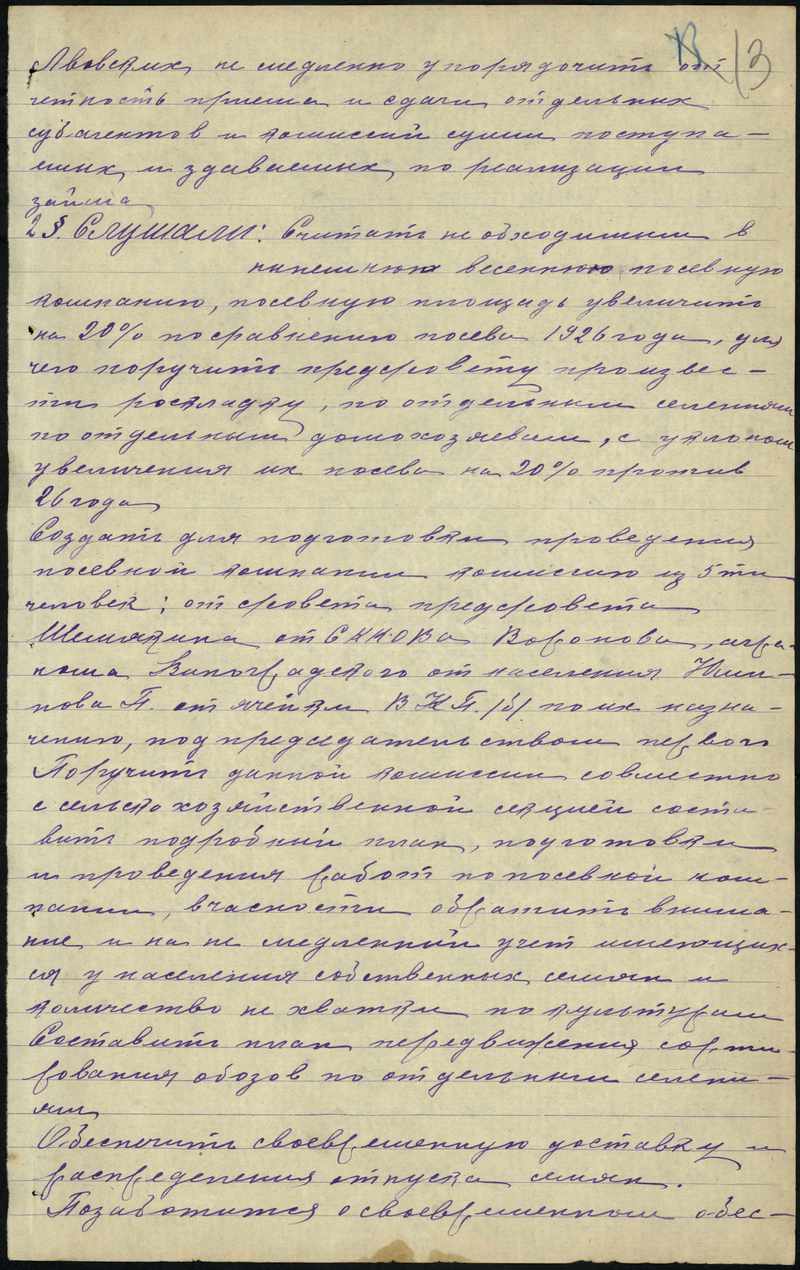 13
Львовских, не медленно упорядочить от
четность приема и сдачи отдельных
субагентов и комиссий сумм поступа-
емых и здаваемых, по реализации
займа
2 §. Слушали: Считать не обходимым в
нынешнюю весеннюю посевную
компанию, посевную площадь увеличить
на 20% по сравнению посева 1926 года, для
чего поручить предсовету произвес-
ти роскладку, по отдельным селениям
по отдельным домохозяевам, с уклоном
увеличения их посева на 20% против
26 года
Создать для подготовки проведения
посевной компании комиссию из 5 ти
человек; от совета предсовета
Шемякина от ЕККОВа Воронова, агро-
нома Виноградского от населения
нова П. от ячейки ВКП/б/ по их назна-
чению, под председательством первого
Поручить данной комиссии совместно
с сельско хозяйственной секцией соста-
вить подробный план, подготовки
и проведения работ по посевной ком-
пании, в часности обратить внима-
ние и на не медленный учет имеющих-
ся у населения собственных семян и
количество не хватки по культурам
Составить план передвижения сорти-
рования обозов по отдельным селени-
ям
Обеспечить своевременную доставку и
распределения отпуска семян.
Позаботится о своевременном обес-